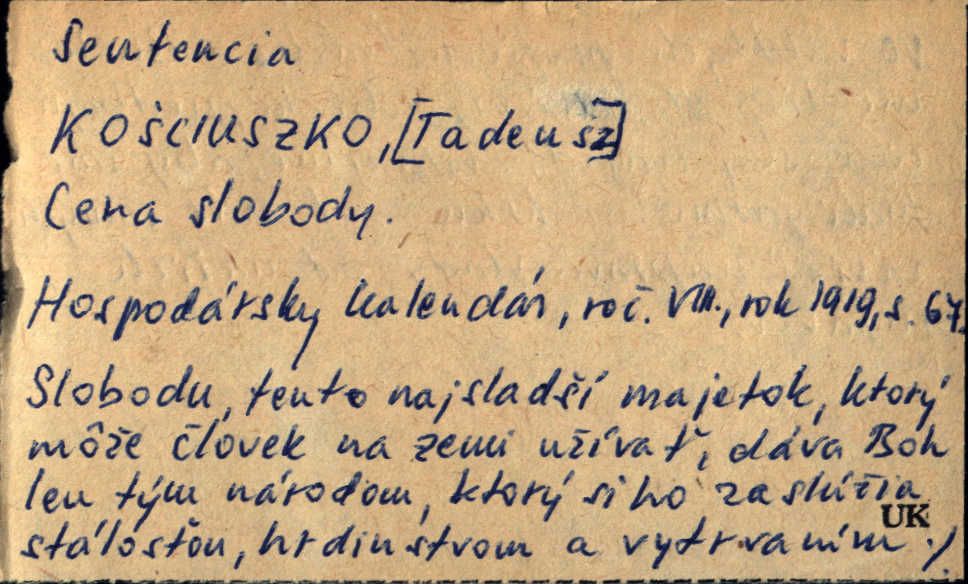 Sentencia
KOŚCIUSZKO, [Tadeusz]
Cena slobody.
Hospodársky kalendár, roč. VIII., rok 1919, s. 67.
Slobodu, tento najsladší majetok, ktorý
môže človek na zemi užívať, dáva Boh
len tým národom, ktorý si ho zaslúžia
UK
stálosťou, hrdinstvom a vytrvaním./